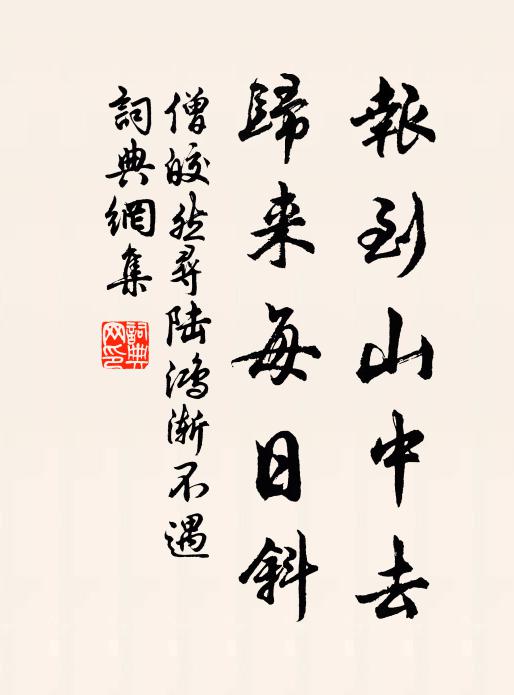 報到山中去
歸来每日斜
僧皎然尋陸鴻漸不遇
詞典網集
詞典
网印